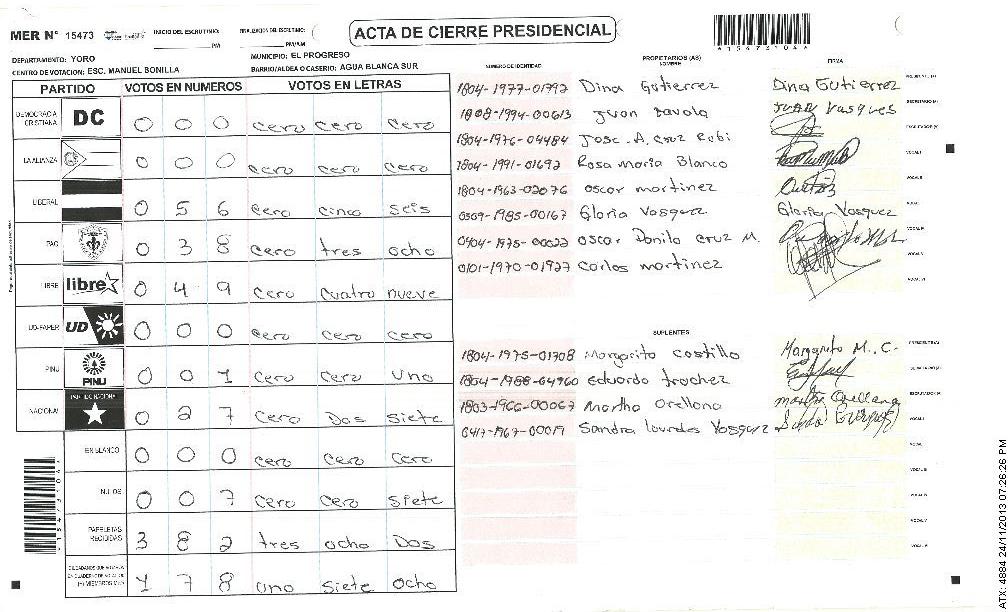 MER N° 15473
INICIO DEL ESCRUTINIO: PM
PM/AM
ACTA DE CIERRE PRESIDENCIAL
DEPARTAMENTO: YORO
MUNICIPIO: EL PROGRESO
CENTRO DE VOTACION: ESC. MANUEL BONILLA
BARRIO/ALDEA O CASERIO: AGUA BLANCA SUR
PARTIDO VOTOS EN NUMEROS VOTOS EN LETRAS
DEMOCRACIA CRISTIANA DC 0 0 0 cero cero cero
LA ALIANZA 0 0 0 cero cero cero
LIBERAL 0 5 6 cero cinco seis
PAC 0 3 8 cero tres ocho
LIBRE libre 0 4 9 cero cuatro nueve
UD-FAPER UD 0 0 0 cero cero cero
PINU PINU 0 0 1 cero cero uno
NACIONAL PARTIDO NACIONAL 0 2 7 cero Dos siete
EN BLANCO 0 0 0 cero cero cero
NULOS 0 0 7 cero cero siete
PAPELETAS RECIBIDAS 3 8 2 tres ocho Dos
1 7 8 uno siete ocho
NUMERO DE IDENTIDAD PROPIETARIOS (AS) NOMBRE FIRMA
1804-1977-01792 Dina Gutierrez Dina Gutierrez
1808-1994-00613 Juan
1804-1976-04484 Jose. A. Cruz
1804-1991-01692 Rosa Maria Blanco
1804-1963-02076 oscar martinez
0509-1985-00167 Gloria Vasquez Gloria Vasquez
0404-1975-00022 oscar Danilo Cruz M.
0101-1970-01927 Carlos martinez
SUPLENTES
1804-1975-01708 Margarito Costillo Margarito M. C.
1804-1988-04960 Eduardo trochez
1803-1966-00067 Martha Orellana martha Orellana
0417-1967-00019 Sandra Lourdes Vasquez
ATX: 4884 24/11/2013 07:26:26 PM